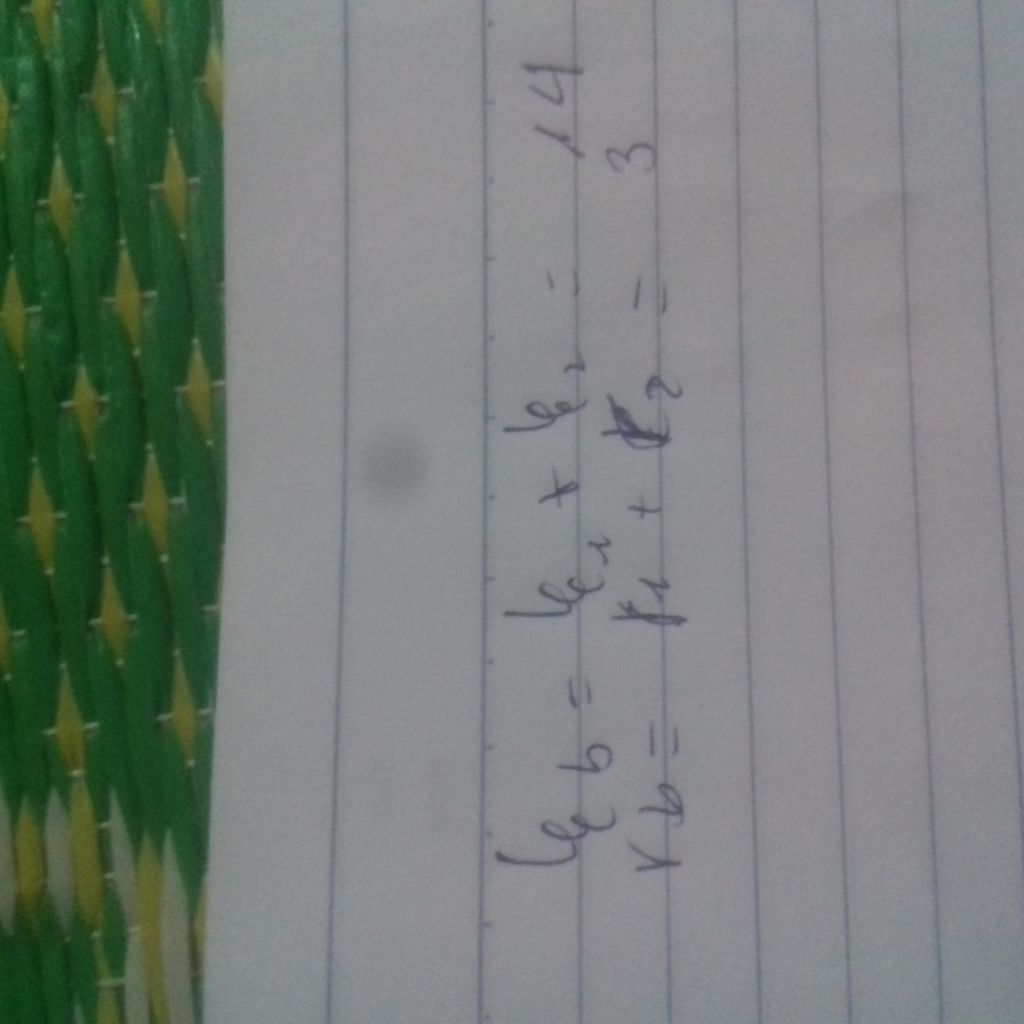 ξb = ξ1 + ξ2 = 14
rb = r1 + r2 = 3